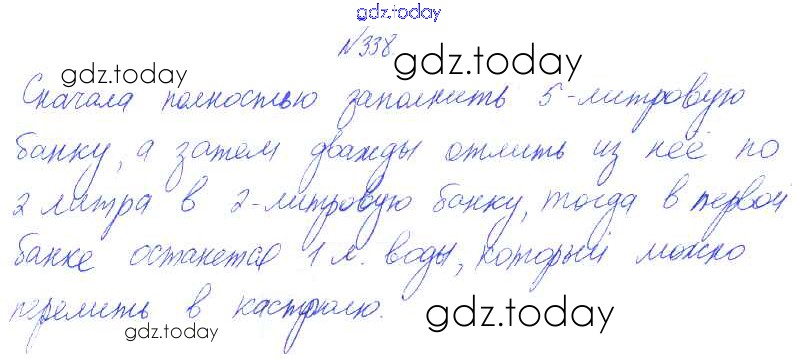 gdz.today
№338
gdz.today gdz.today
Сначала полностью заполнить 5-литровую
банку, а затем дважды отлить из неё по
2 литра в 2-литровую банку, тогда в первой
банке останется 1 л. воды, который можно
перелить в кастрюлю.
gdz.today gdz.today